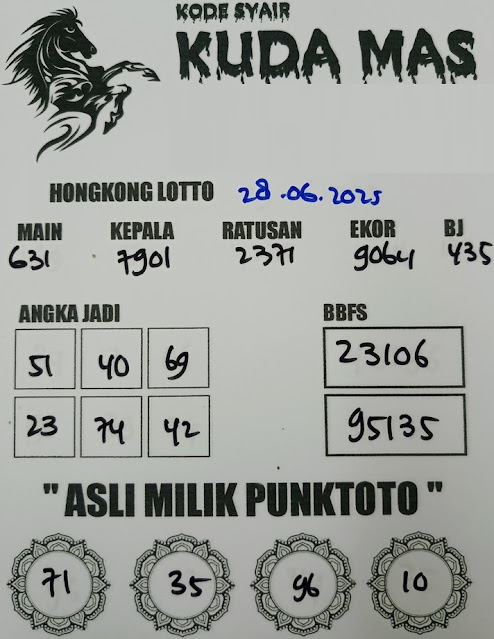 KODE SYAIR
KUDA MAS
HONGKONG LOTTO 28.06.2025
MAIN KEPALA RATUSAN EKOR BJ
631 7901 2371 9064 435
ANGKA JADI BBFS
51 40 69 23106
23 74 42 95135
"ASLI MILIK PUNKTOTO"
71 35 96 10